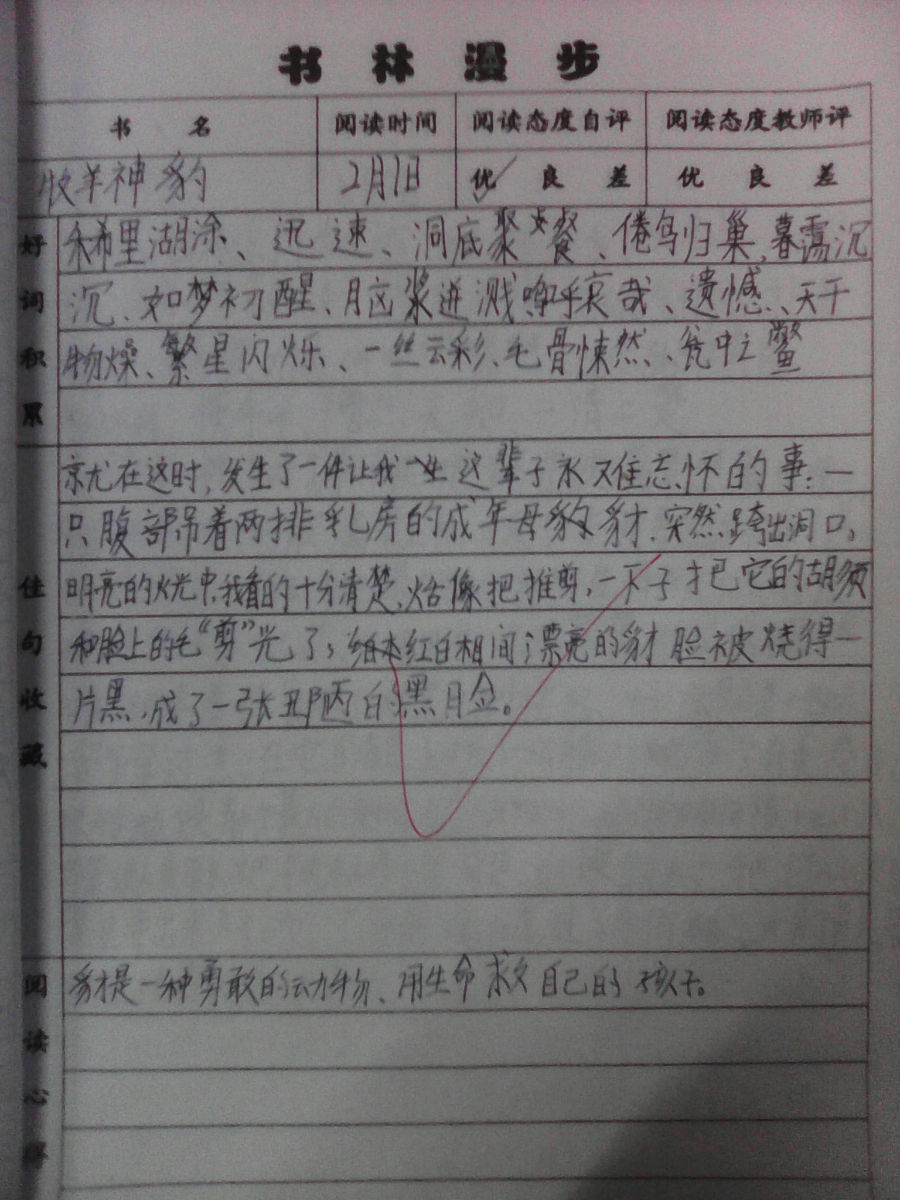 书林漫步
书名 阅读时间 阅读态度自评 阅读态度教师评
牧羊神豹 2月1日 优 良 差 优 良 差
好词积累
希里湖涂、迅速、洞底聚餐、倦鸟归巢、暮霭沉
沉、如梦初醒、脑浆迸溅、呜呼哀哉、遗憾、天干
物燥、繁星闪烁、一丝云彩、毛骨悚然、瓮中之鳖
佳句收藏
就在这时,发生了一件让我 这辈子永难忘怀的事:一
只腹部吊着两排乳房的成年母豺,突然跨出洞口,
明亮的火光中,我看的十分清楚,火焰像把推剪,一下子把它的胡须
和脸上的毛“剪”光了,红白相间漂亮的豺脸被烧得一
片黑,成了一张丑陋的黑脸。
阅读心得
豺是一种勇敢的动物、用生命救自己的孩子。